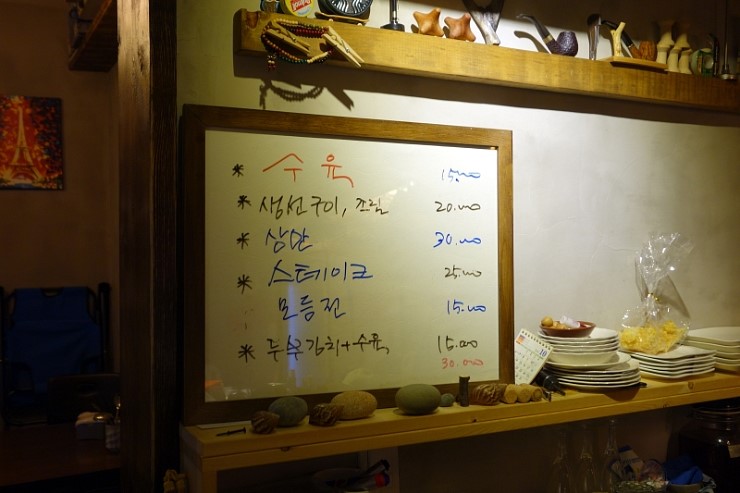 * 수육 15.000
* 생선구이, 조림 20.000
* 삼만 30.000
* 스테이크 25.000
모듬전 15.000
* 두부김치+수육 15.000
30.000